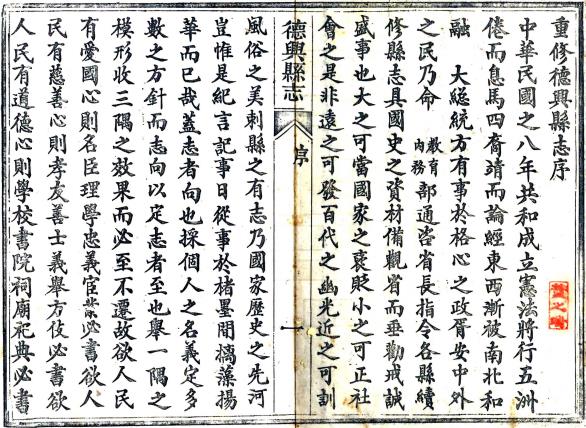 重修德興縣志序
中華民國之八年共和成立憲法將行五洲
倦而息馬四裔靖而論經東西漸被南北和
融　大總統方有事於格心之政胥安中外
之民乃命教育內務部通咨省長指令各縣續
修縣志具國史之資材備觀省而垂勸戒誠
盛事也大之可當國家之褒貶小之可正社
會之是非遠之可發百代之幽光近之可訓
德興縣志
序
一
風俗之美刺縣之有志乃國家歷史之先河
豈惟是紀言記事日從事於楮墨間摛藻揚
華而已哉蓋志者向也採個人之名義定多
數之方針而志向以定志者至也舉一隅之
模形收三隅之效果而必至不遷故欲人民
有愛國心則名臣理學忠義宦業必書欲人
民有慈善心則孝友善士義舉方伎必書欲
人民有道德心則學校書院祠廟祀典必書